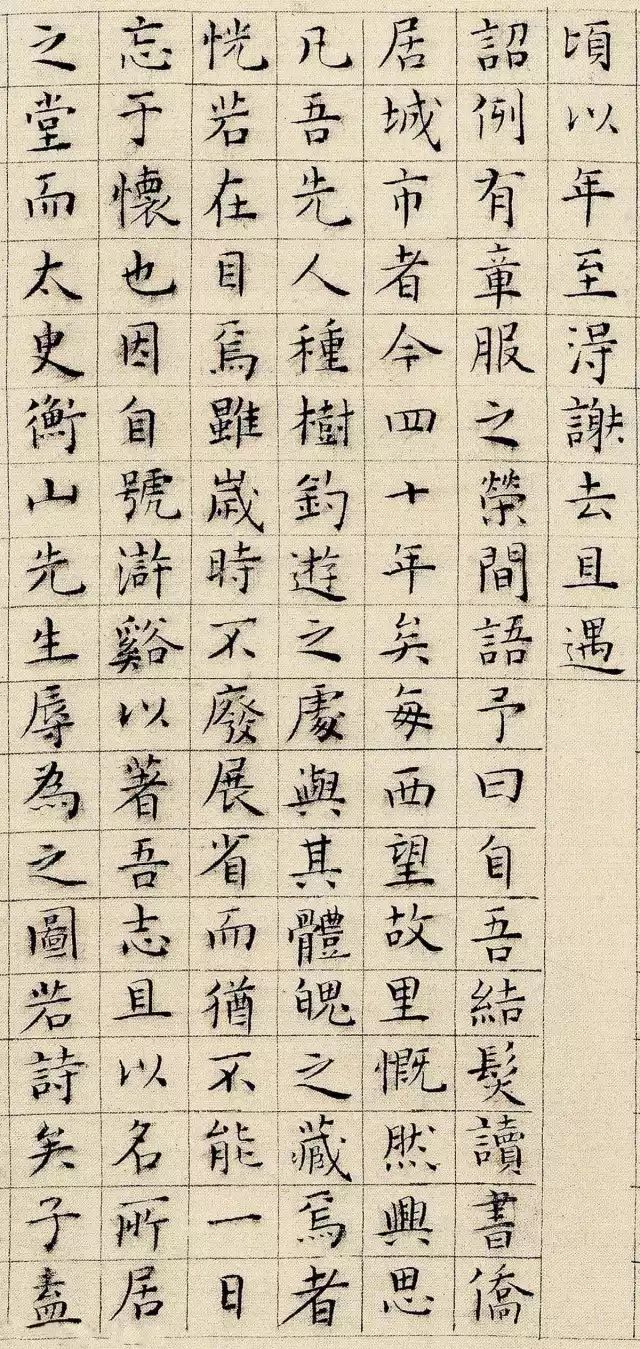 頃以年至淂謝去且遇
詔例有章服之榮間語予曰自吾結髮讀書僑
居城市者今四十年矣每西望故里慨然興思
凡吾先人種樹釣遊之處與其體魄之藏焉者
恍若在目焉雖歲時不廢展省而猶不能一日
忘于懷也因自號滸谿以著吾志且以名所居
之堂而太史衡山先生辱為之圖若詩矣子盍